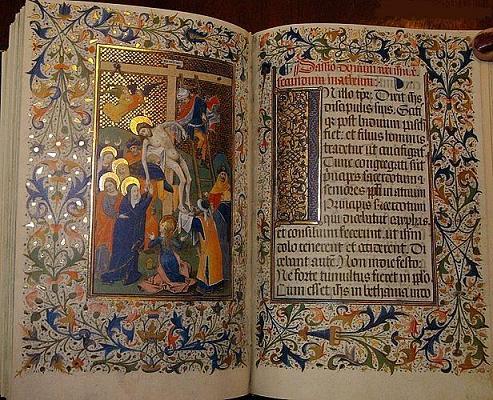 Passio domini nostri
secundum matheum
In illo tpr. Dixit ihs
discipulis suis. Scitis
q post biduum pasch
fiet: et filius hominis
tradetur ut crucifigat
Tunc congregati sut
principes sacerdotum
seniores ppli in atrium
Principis sacerdotum
qui dicebatur cayphas.
et consilium fecerunt ut ihm
dolo tenerent et occiderent. Di
cebant aute. Non in die festo:
Ne forte tumultus fieret in pplo.
Cum esset ihs in bethania in do